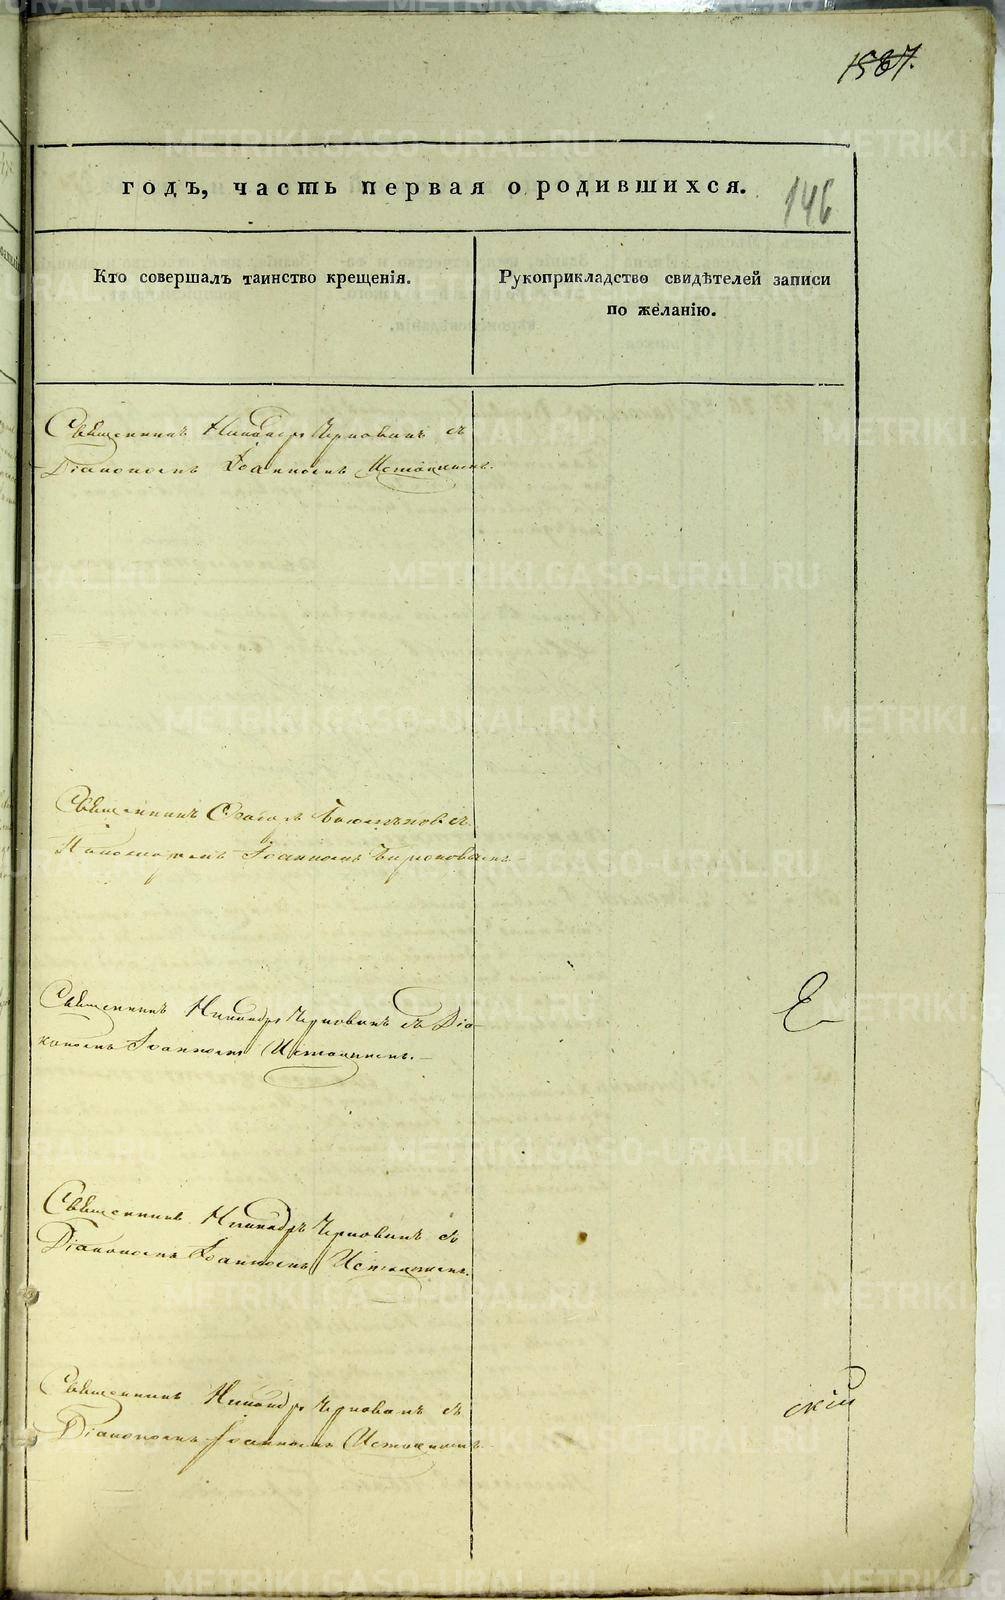 1567.
годъ, часть первая о родившихся.
146
Кто совершалъ таинство крещенія.
Рукоприкладство свидѣтелей записи
по желанію.
Священникъ Никандръ съ
Діакономъ Іоанномъ Истоминымъ.
Священникъ
Іоанномъ
Священникъ Никандръ съ Діа-
кономъ Іоанномъ Истоминымъ.
Е
Священникъ Никандръ съ
Діакономъ Іоанномъ Истоминымъ.
Священникъ Никандръ съ
Діакономъ Іоанномъ Истоминымъ.
скій
METRIKI.GASO-URAL.RU